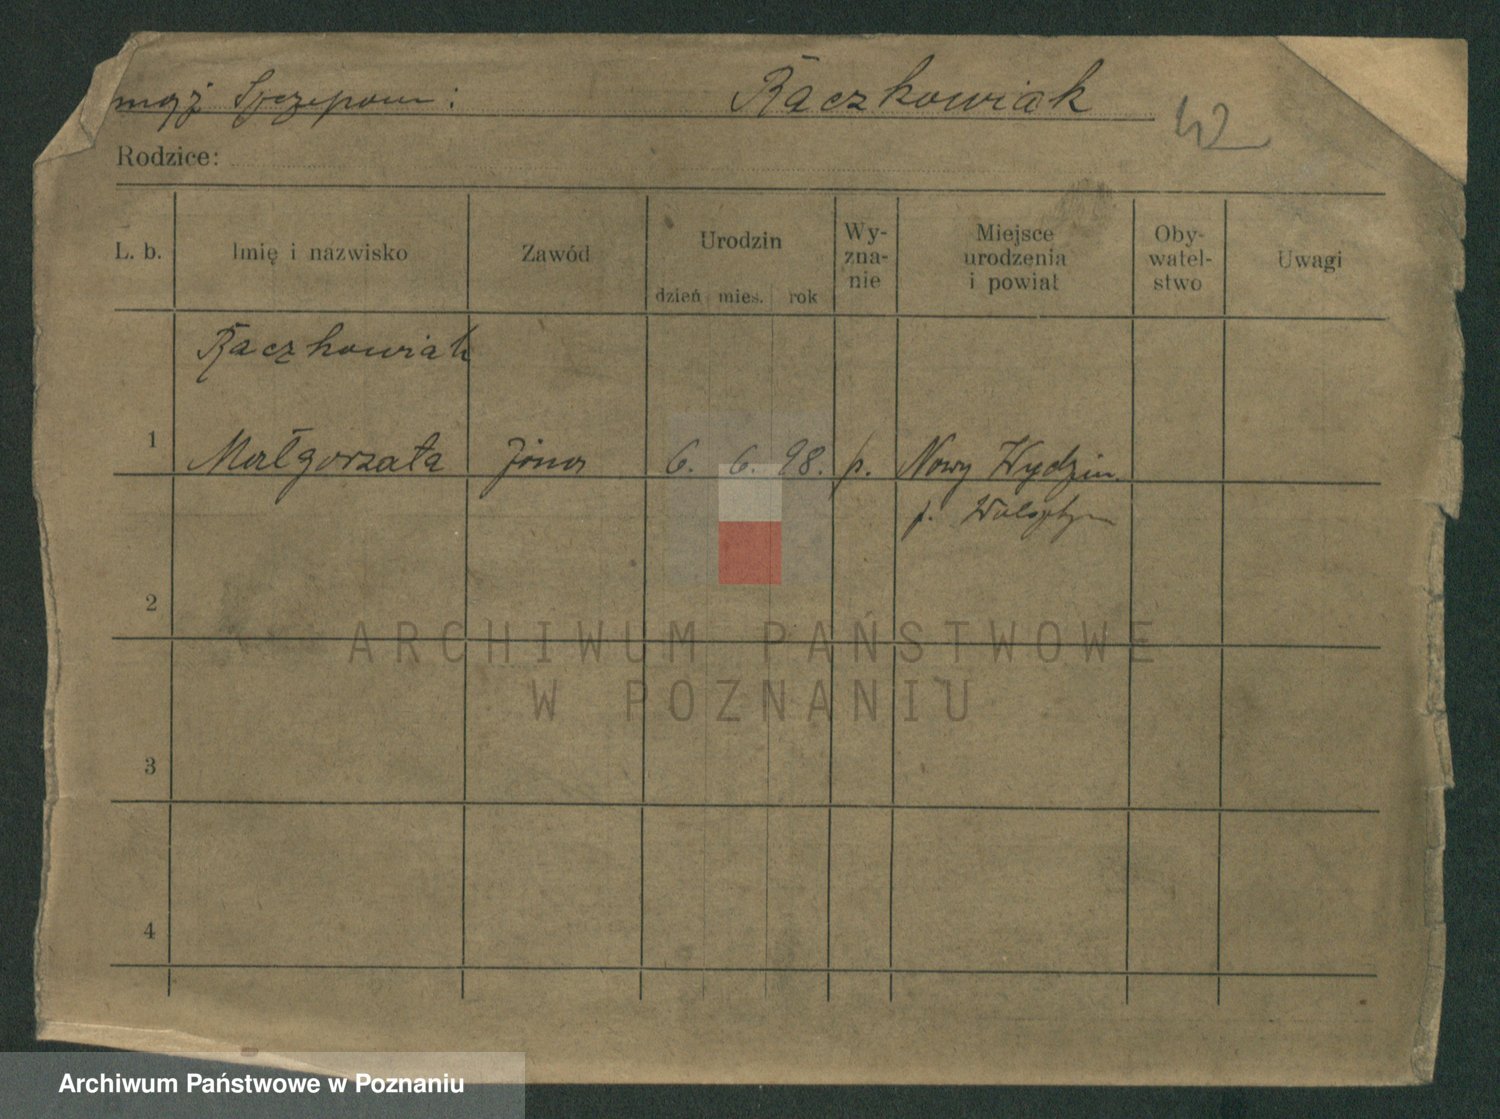 mąż Szczepan : Raczkowiak
Rodzice:
L. b. Imię i nazwisko Zawód Urodzin dzień mies. rok Wy-zna-nie Miejsce urodzenia i powiat Oby-watel-stwo Uwagi
Raczkowiak
1 Małgorzata żona 6. 6. 98. p. Nowy
p. Wolsztyn
2
3
4
ARCHIWUM PAŃSTWOWE
W POZNANIU
Archiwum Państwowe w Poznaniu